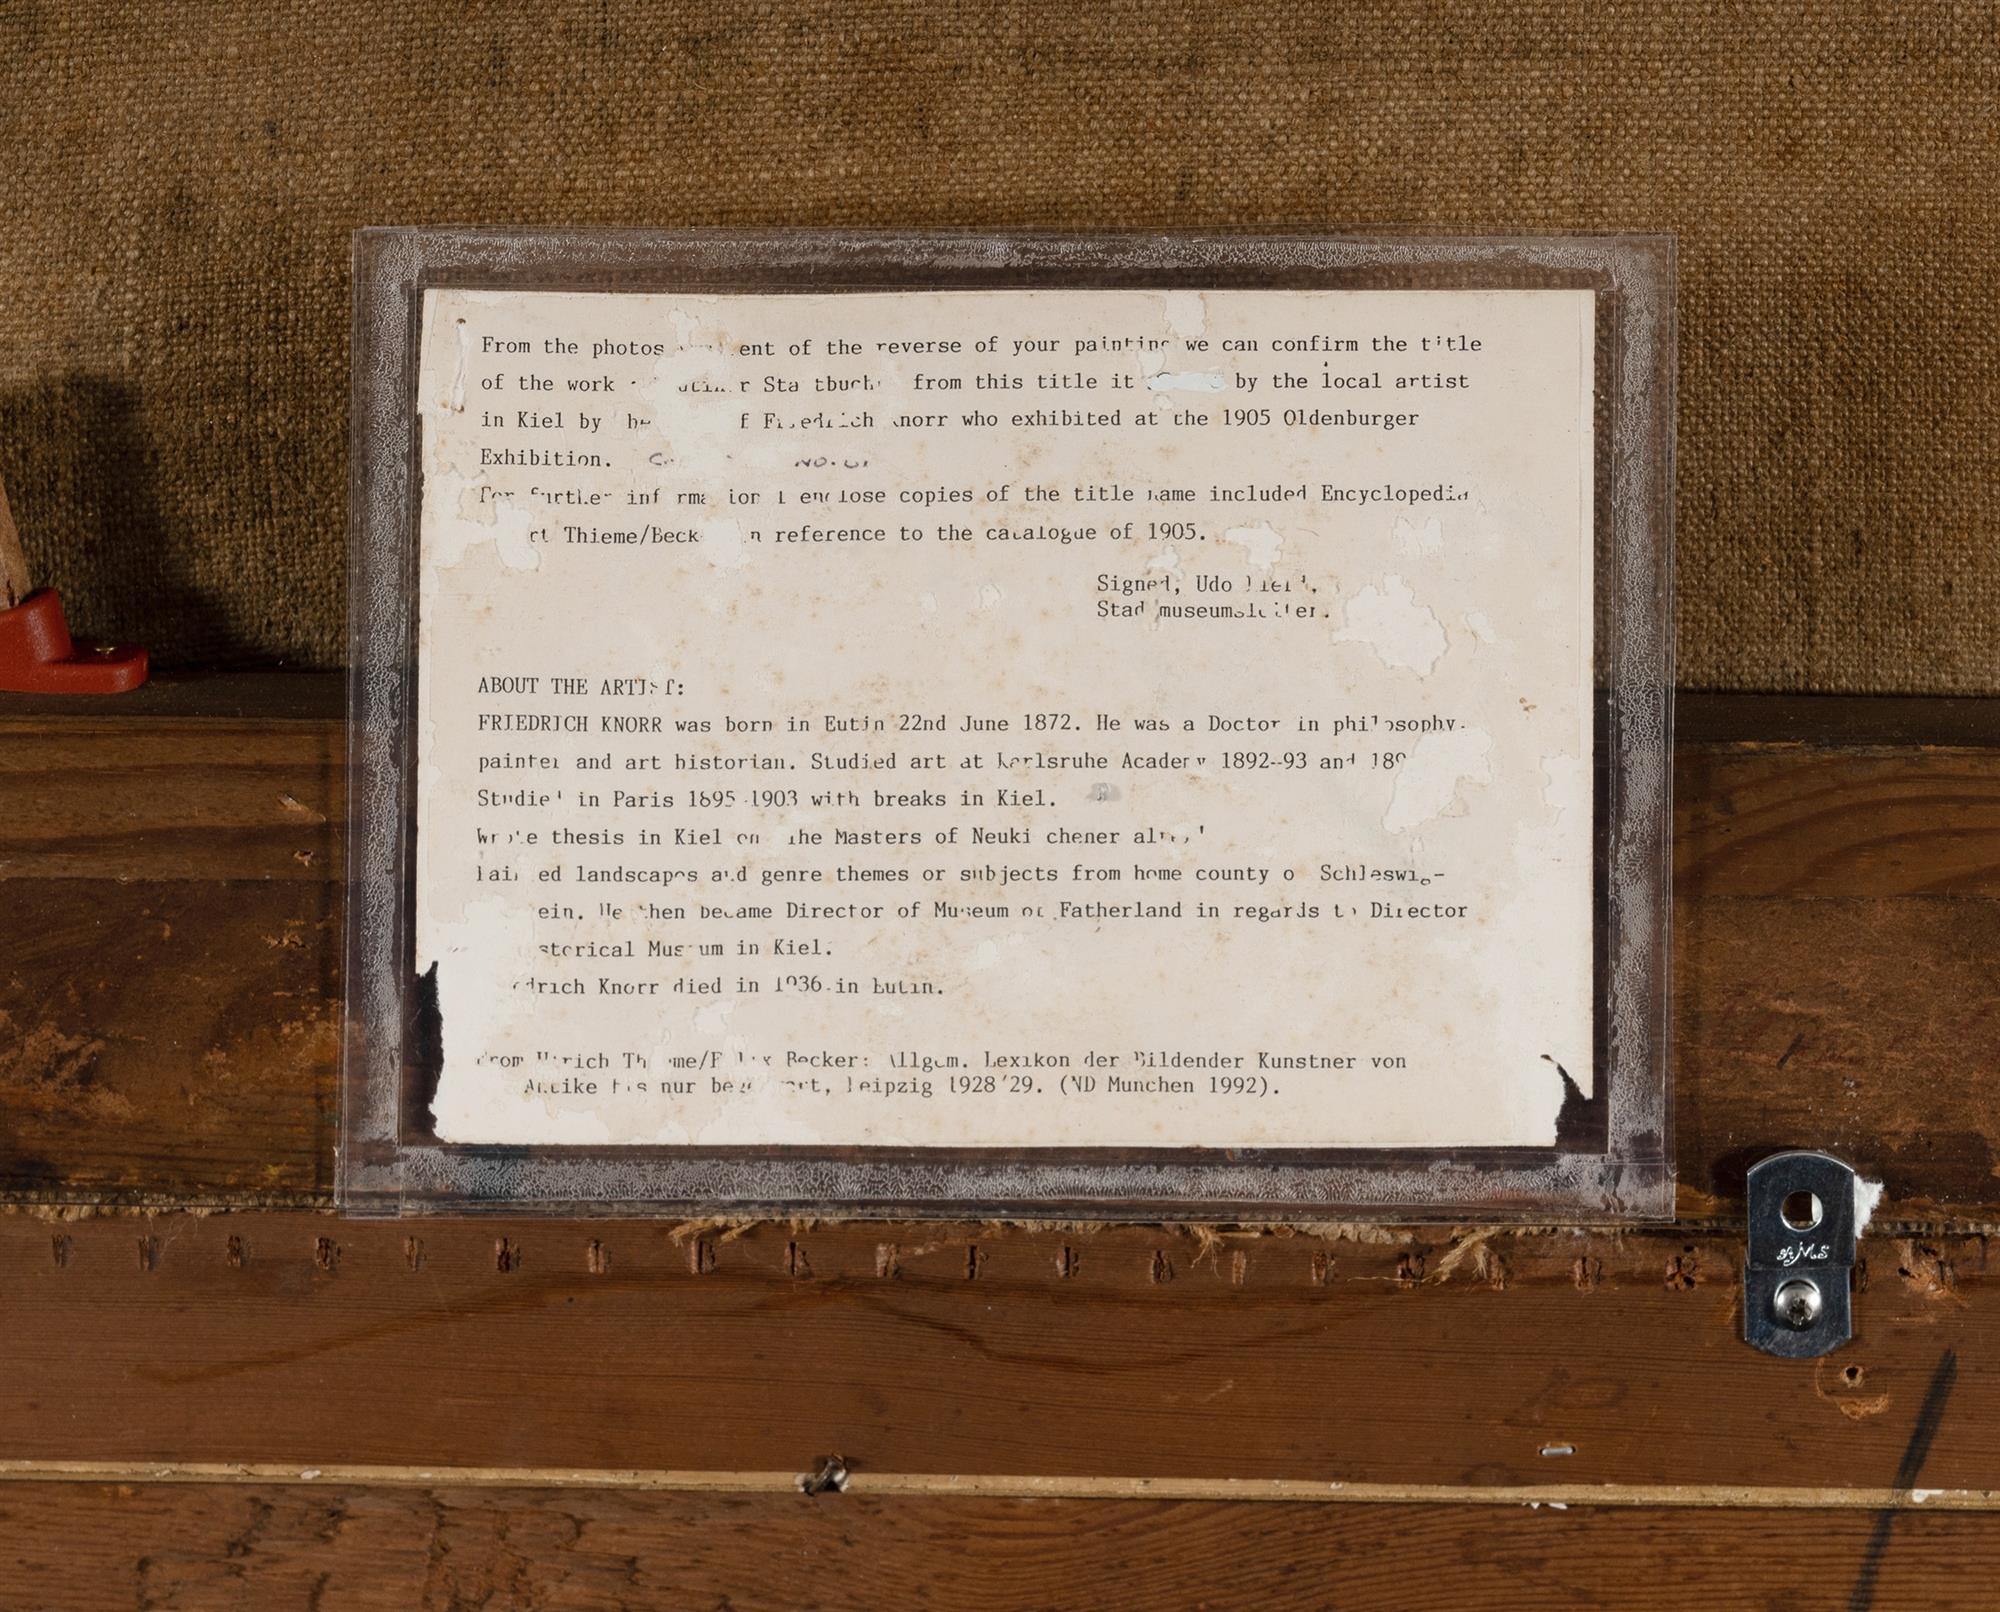 From the photos ent of the reverse of your painting we can confirm the title
of the work r Sta tbuch from this title it by the local artist
in Kiel by f Friedrich Knorr who exhibited at the 1905 Oldenburger
Exhibition. NO.
For further information I enclose copies of the title name included Encyclopedia
rt Thieme/Beck n reference to the catalogue of 1905.
Signed, Udo
Stadtmuseumsleiter.
ABOUT THE ARTIST:
FRIEDRICH KNORR was born in Eutin 22nd June 1872. He was a Doctor in philosophy.
painter and art historian. Studied art at Karlsruhe Academy 1892-93 and 189
Studied in Paris 1895-1903 with breaks in Kiel.
Wrote thesis in Kiel on the Masters of Neuki chener
Painted landscapes and genre themes or subjects from home county o Schleswig-
ein. He then became Director of Museum of Fatherland in regards to Director
storical Museum in Kiel.
drich Knorr died in 1936 in Eutin.
From Ulrich Thieme/Felix Becker: Allgem. Lexikon der Bildender Kunstner von
Antike bis nur rt, Leipzig 1928/29. (ND Munchen 1992).
AMS